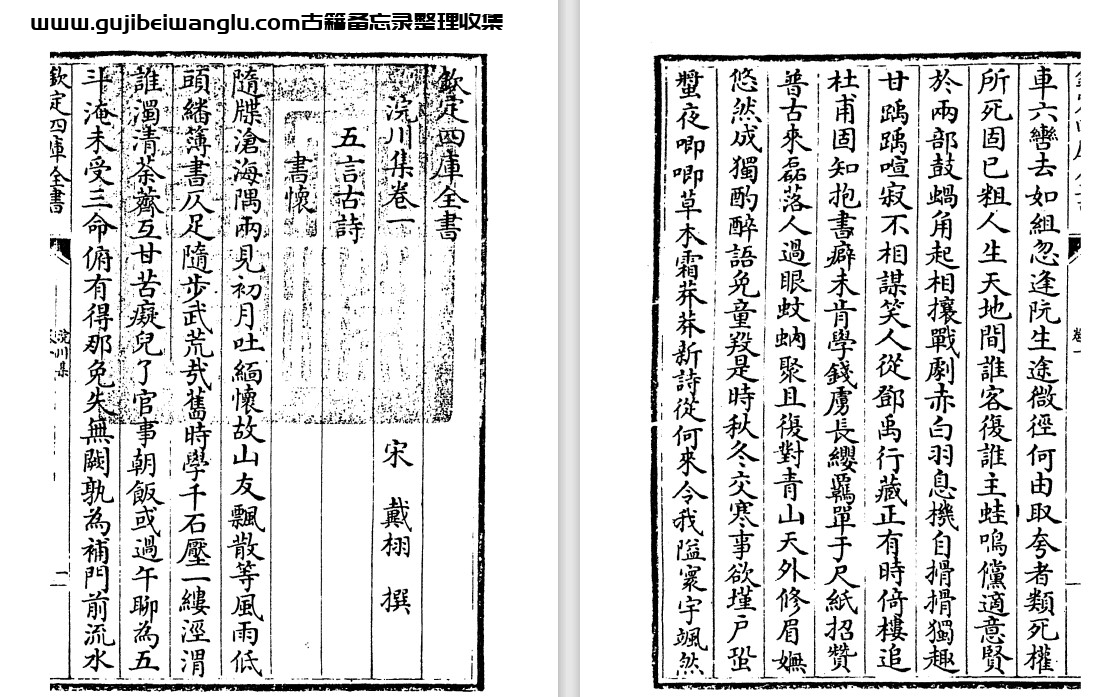 www.gujibeiwanglu.com古籍备忘录整理收集
欽定四庫全書
浣川集卷一 宋 戴栩 撰
五言古詩
書懷
隨牒滄海隅兩見初月吐緬懷故山友飄散等風雨低
頭繙薄書仄足隨步武荒哉舊時學千石壓一縷涇渭
誰濁清荼薺互甘苦癡兒了官事朝飯或過午聊為五
斗淹未受三命俯有得那免失無闕孰為補門前流水
欽定四庫全書
浣川集
一
卷一
車六轡去如組忽逢阮生途微徑何由取夸者類死權
所死固已粗人生天地間誰客復誰主蛙鳴儻適意賢
於兩部鼓蝸角起相攘戰劇赤白羽息機自搰搰獨趣
甘踽踽喧寂不相謀笑人從鄧禹行藏正有時倚樓追
杜甫固知抱書癖未肯學錢虜長纓羈單于尺紙招贊
普古來磊落人過眼蚊蚋聚且復對青山天外修眉嫵
悠然成獨酌醉語免童羖是時秋冬交寒事欲墐戶蛩
螿夜唧唧草本霜莽莽新詩從何來令我隘寰宇颯然